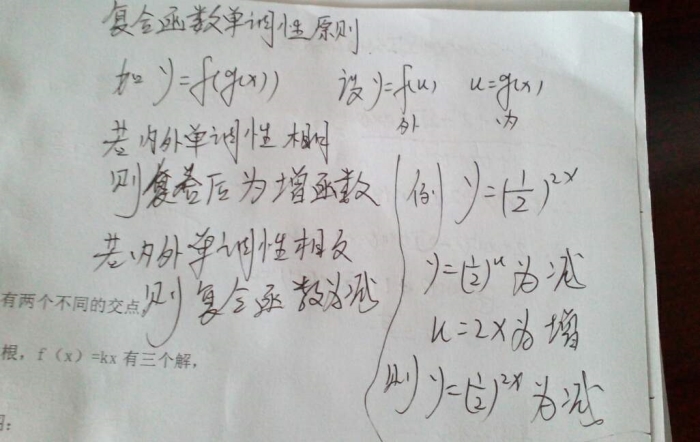 复合函数单调性原则
如 y=f(g(x)) 设 y=f(u) u=g(x)
外 内
若内外单调性相同
则复合后为增函数
若内外单调性相反
则复合函数为减
例 y=(1/2)^2x
y=(1/2)^u 为减
u=2x为增
则 y=(1/2)^2x 为减
有两个不同的交点,
根，f（x）=kx 有三个解，